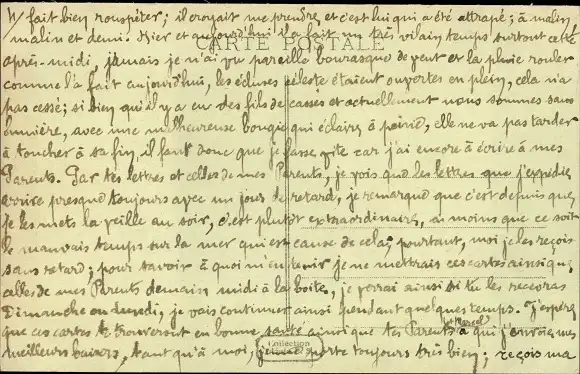 fait bien rouspéter; il croyait me prendre et c'est lui qui a été attrapé; à malin,
malin et demi. Hier et aujourd'hui il a fait un très vilain temps surtout cette
CARTE POSTALE
après-midi, jamais je n'ai vu pareille bourrasque de vent et la pluie rouler
comme l'a fait aujourd'hui, les écluses céleste étaient ouvertes en plein, cela n'a
pas cessé; si bien qu'il y a eu des fils de cassés et actuellement nous sommes sans
lumière, avec une malheureuse bougie qui éclaire à peine, elle ne va pas tarder
à toucher à sa fin, il faut donc que je fasse vite car j'ai encore à écrire à mes
Parents. Par tes lettres et celles de mes Parents, je vois que les lettres que j'expédie
arrive presque toujours avec un jour de retard, je remarque que c'est depuis que
je les mets la veille au soir, c'est plutôt extraordinaire, à moins que ce soit
le mauvais temps sur la mer qui est cause de cela; pourtant, moi je les reçois
sans retard; pour savoir à quoi m'en tenir je ne mettrais ces cartes ainsi que
celles de mes Parents demain midi à la boîte, je verrai ainsi si tu les recevras
Dimanche ou Lundi, je vais continuer ainsi pendant quelques temps. J'espère
que ces cartes te trouveront en bonne santé ainsi que tes Parents et Marcel à qui j'envoie mes
meilleurs baisers, tant qu'à moi, je me porte toujours très bien; reçois ma
Collection